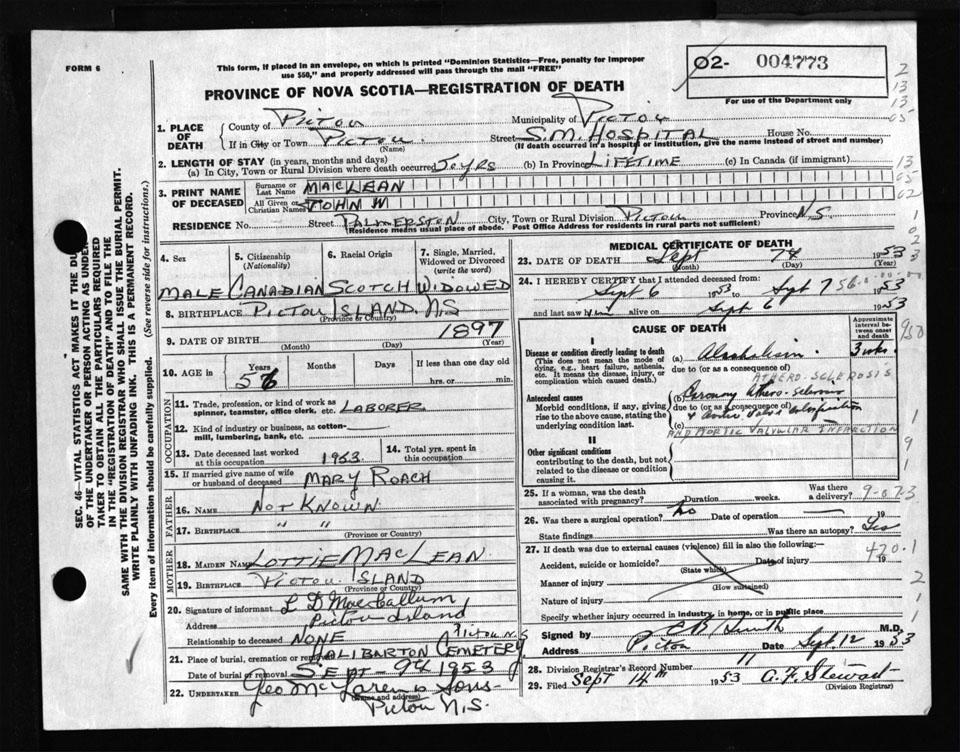 FORM 6
This form, if placed in an envelope, on which is printed "Dominion Statistics—Free, penalty for improper
use $50," and properly addressed will pass through the mail "FREE"
02- 004773
For use of the Department only
PROVINCE OF NOVA SCOTIA—REGISTRATION OF DEATH
1. PLACE OF DEATH
County of Pictou
Municipality of Pictou
If in City or Town Pictou
(Name)
Street S.M. HOSPITAL House No.
(If death occurred in a hospital or institution, give the name instead of street and number)
2. LENGTH OF STAY (in years, months and days)
(a) In City, Town or Rural Division where death occurred 30 yrs (b) In Province LIFETIME (c) In Canada (if immigrant)
3. PRINT NAME OF DECEASED
Surname or Last Name MACLEAN
All Given or Christian Names JOHN W
RESIDENCE No. Street PALMERSTON City, Town or Rural Division Pictou Province N.S.
(Residence means usual place of abode. Post Office Address for residents in rural parts not sufficient)
4. Sex
5. Citizenship (Nationality)
6. Racial Origin
7. Single, Married, Widowed or Divorced (write the word)
MALE CANADIAN SCOTCH WIDOWED
8. BIRTHPLACE PICTOU ISLAND. N.S
(Province or Country)
9. DATE OF BIRTH 1897
(Month) (Day) (Year)
10. AGE in Years Months Days If less than one day
56 hrs. or min.
OCCUPATION
11. Trade, profession, or kind of work as
spinner, teamster, office clerk, etc. LABORER
12. Kind of industry or business, as cotton-
mill, lumbering, bank, etc.
13. Date deceased last worked
at this occupation 1953
14. Total yrs. spent in
this occupation
15. If married give name of wife
or husband of deceased MARY ROACH
FATHER
16. Name NOT KNOWN
17. Birthplace " "
(Province or Country)
MOTHER
18. MAIDEN NAME LOTTIE MACLEAN
19. BIRTHPLACE PICTOU ISLAND
(Province or Country)
20. Signature of informant L D MacCallum
Address Pictou Island
Relationship to deceased NONE
Pictou N.S
21. Place of burial, cremation or removal HALIBARTON CEMETERY
Date of burial or removal SEPT- 9th 1953
22. UNDERTAKER Geo McLaren & Sons
(Name and address)
Pictou N.S.
MEDICAL CERTIFICATE OF DEATH
23. DATE OF DEATH Sept 7th 1953
(Month) (Day) (Year)
24. I HEREBY CERTIFY that I attended deceased from:
Sept 6 1953 to Sept 7 1953
and last saw him alive on Sept 6 1953
CAUSE OF DEATH
Approximate interval between onset and death
I
Disease or condition directly leading to death
(This does not mean the mode of dying, e.g., heart failure, asthenia, etc. It means the disease, injury, or complication which caused death.)
(a) Alcoholism. 3 wks
due to (or as a consequence of)
ATHERO-SCLEROSIS
Antecedent causes
Morbid conditions, if any, giving rise to the above cause, stating the underlying condition last.
(b) Coronary Athero-sclerosis
due to (or as a consequence of)
(c)
AND AORTIC VALVULAR INFARCTION
II
Other significant conditions
contributing to the death, but not related to the disease or condition causing it.
25. If a woman, was the death associated with pregnancy? Duration weeks. Was there a delivery?
9-0723
26. Was there a surgical operation? No Date of operation 19
State findings Was there an autopsy? Yes
27. If death was due to external causes (violence) fill in also the following:—
420.1
Accident, suicide or homicide? Date of injury 19
(State which)
Manner of injury
(How sustained)
Nature of injury
Specify whether injury occurred in industry, in home, or in public place
Signed by C B Smith M.D.
Address Pictou Date Sept. 12 1953
28. Division Registrar's Record Number 11
29. Filed Sept 14th 1953 C. F. Stewart
(Division Registrar)
SEC. 46—VITAL STATISTICS ACT MAKES IT THE DU
OF THE UNDERTAKER OR PERSON ACTING AS UNDER
TAKER TO OBTAIN ALL THE PARTICULARS REQUIRED
IN THE "REGISTRATION OF DEATH" AND TO FILE THE
SAME WITH THE DIVISION REGISTRAR WHO SHALL ISSUE THE BURIAL PERMIT.
WRITE PLAINLY WITH UNFADING INK. THIS IS A PERMANENT RECORD.
Every item of information should be carefully supplied. (See reverse side for instructions.)